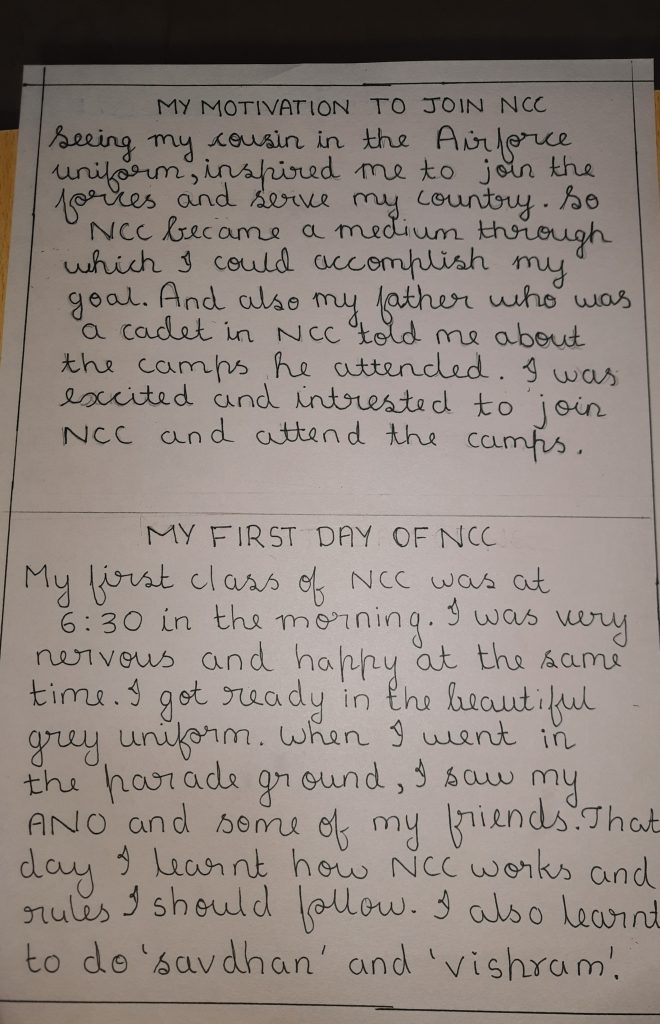 MY MOTIVATION TO JOIN NCC
Seeing my cousin in the Airforce
uniform, inspired me to join the
forces and serve my country. So
NCC became a medium through
which I could accomplish my
goal. And also my father who was
a cadet in NCC told me about
the camps he attended. I was
excited and intrested to join
NCC and attend the camps.
MY FIRST DAY OF NCC
My first class of NCC was at
6:30 in the morning. I was very
nervous and happy at the same
time. I got ready in the beautiful
grey uniform. When I went in
the parade ground, I saw my
ANO and some of my friends. That
day I learnt how NCC works and
rules I should follow. I also learnt
to do 'savdhan' and 'vishram'.